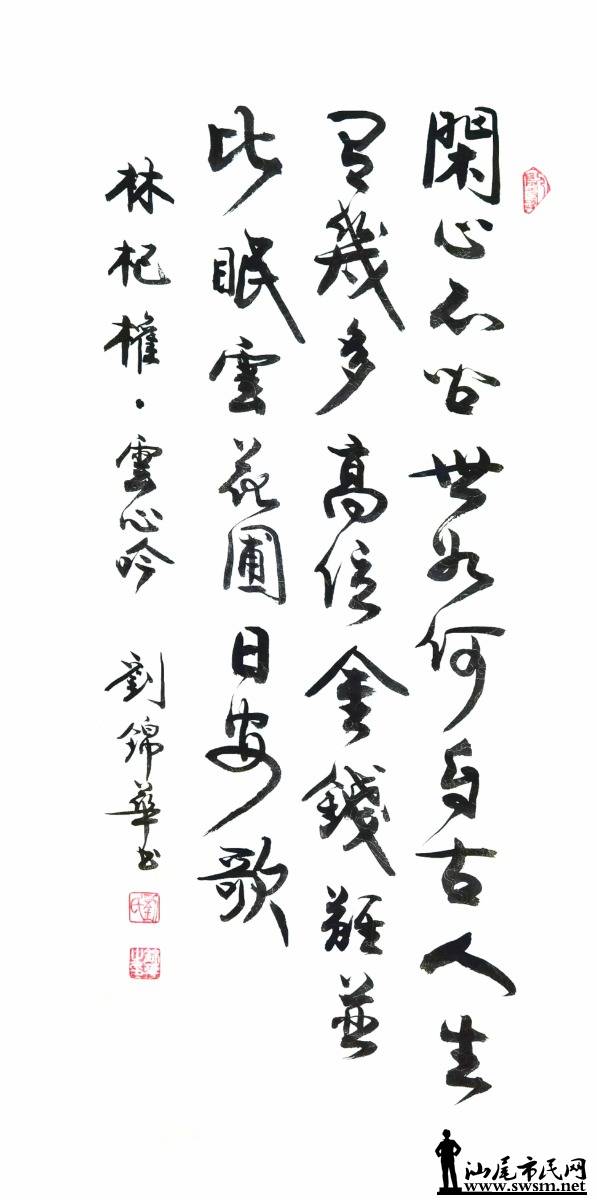 閑心不問世如何与古人生
有幾多高位金錢難並
比眠雲花圃日安歌
林杞權·雲心吟 劉錦華书
汕尾市民网
www.swsm.net